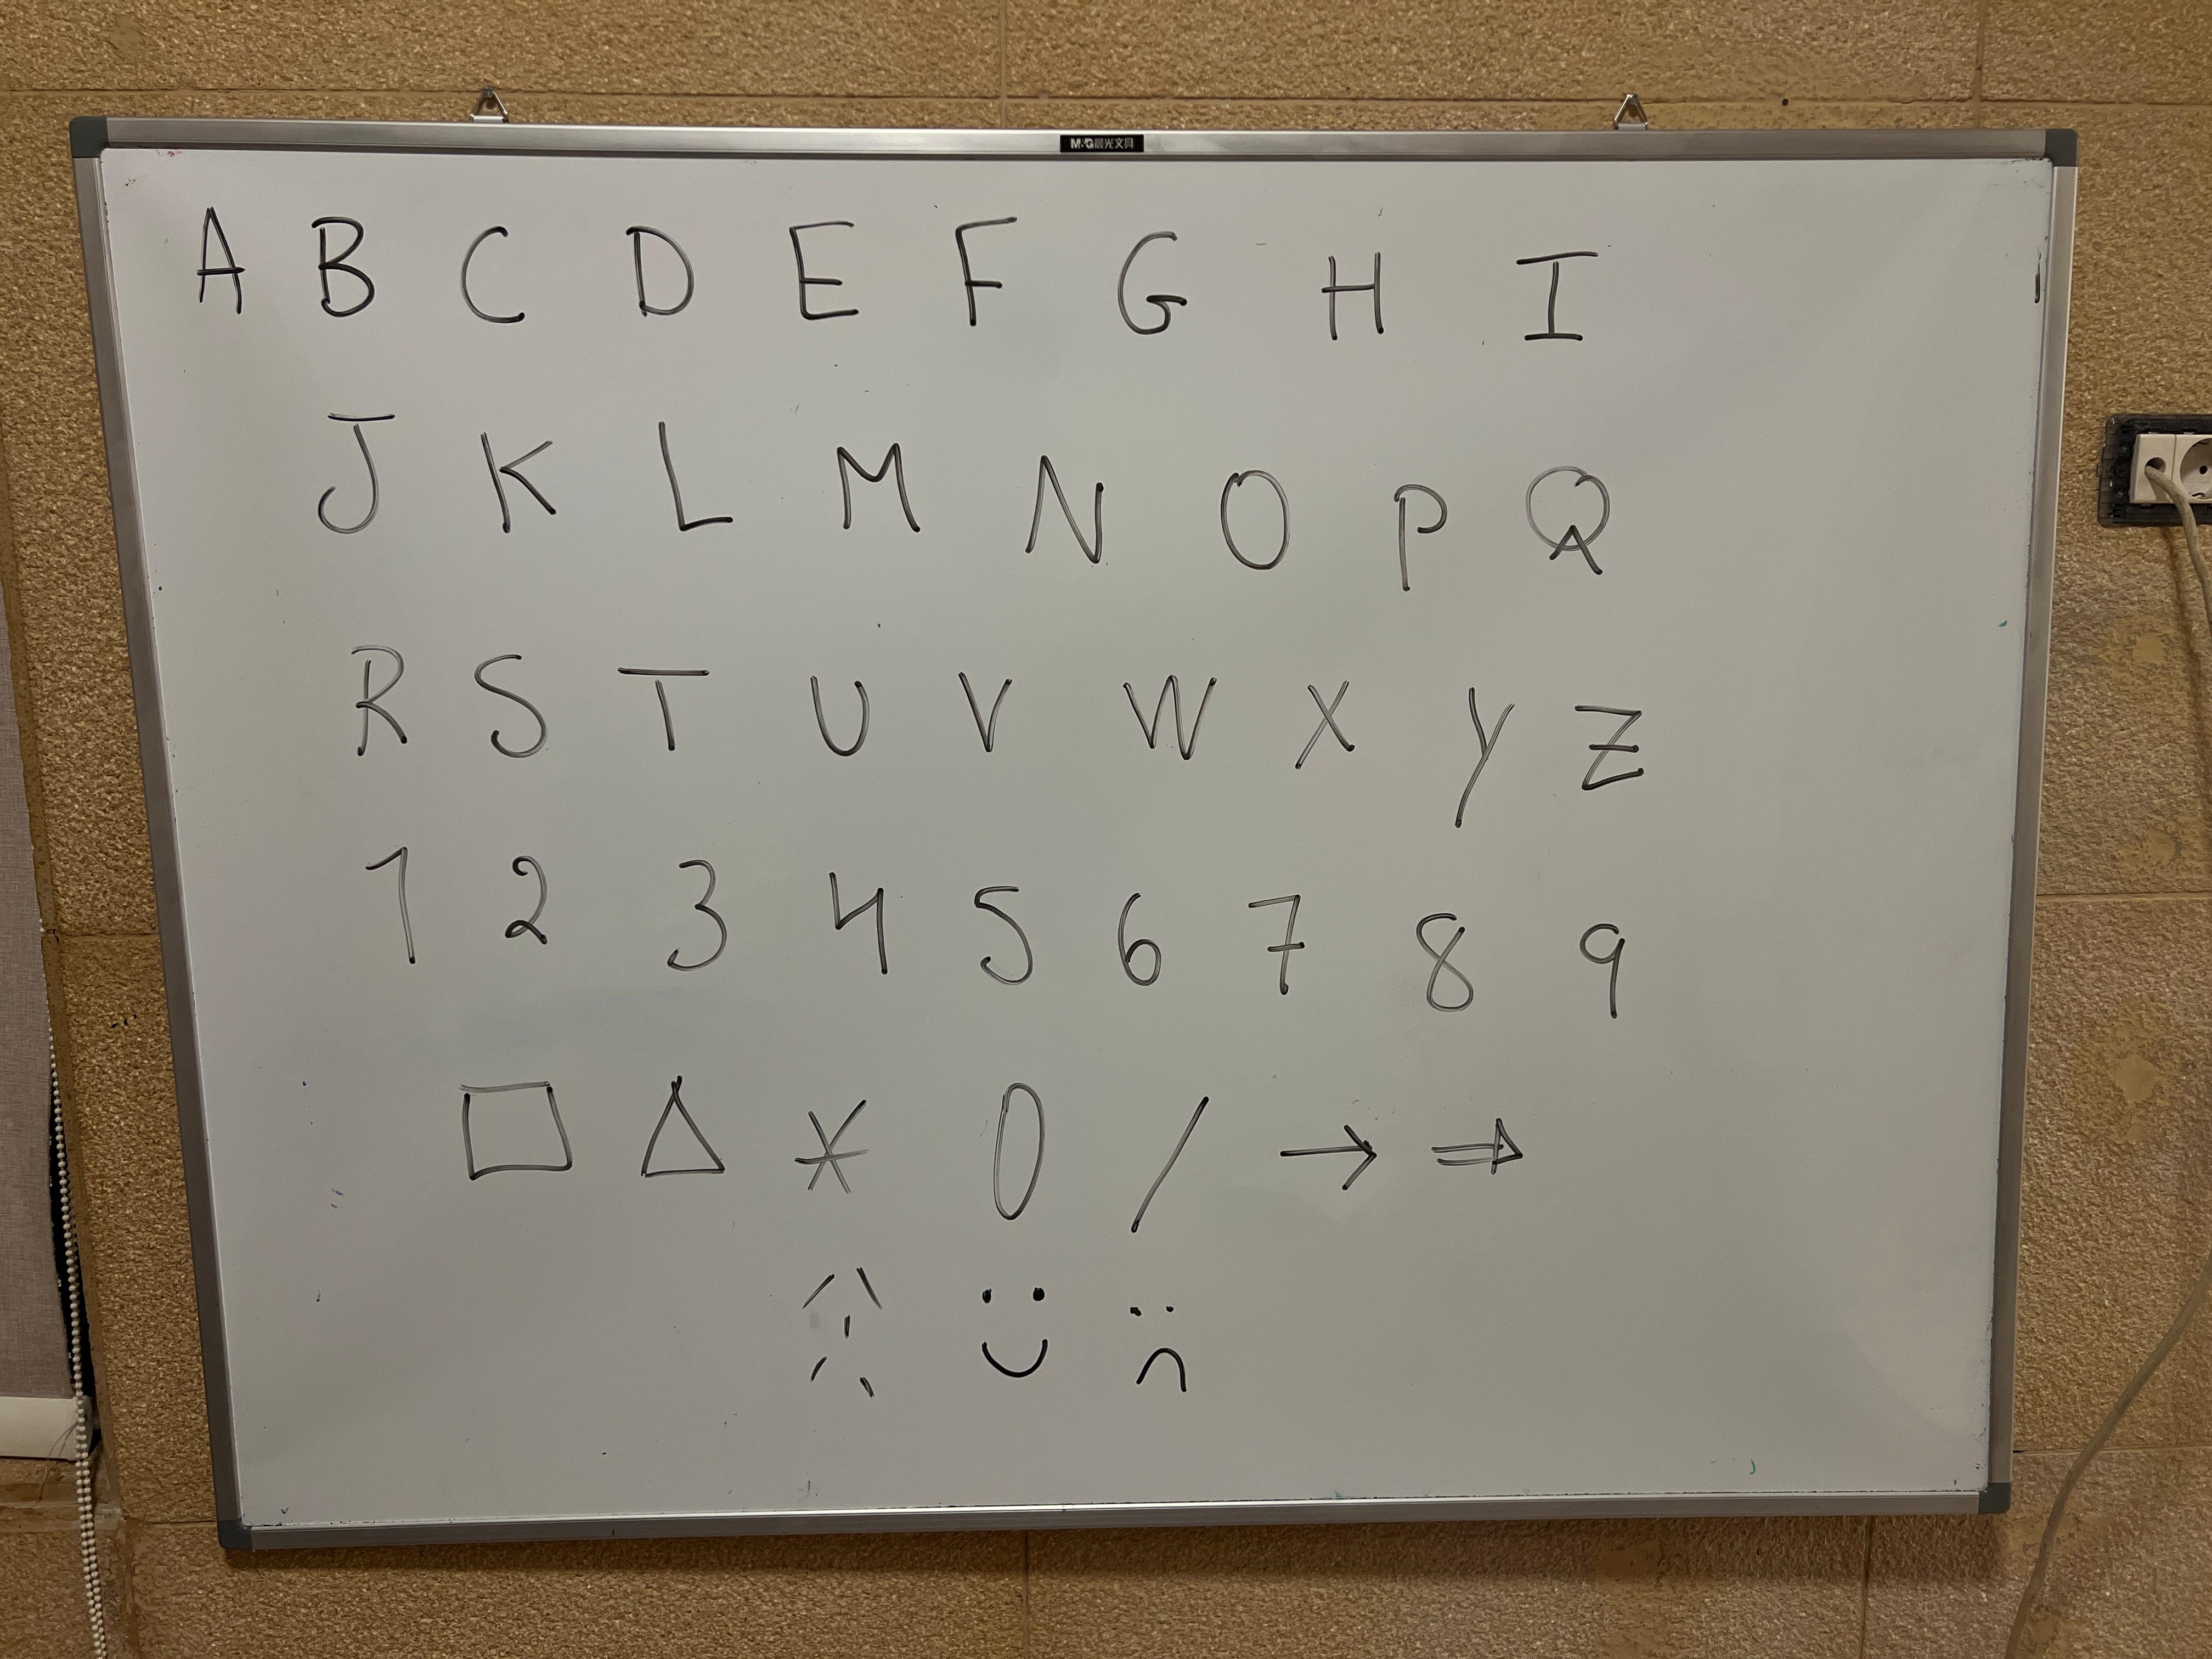 M&G晨光文具
A B C D E F G H I
J K L M N O P Q
R S T U V W X Y Z
1 2 3 4 5 6 7 8 9
□ △ * 0 / → ⇒